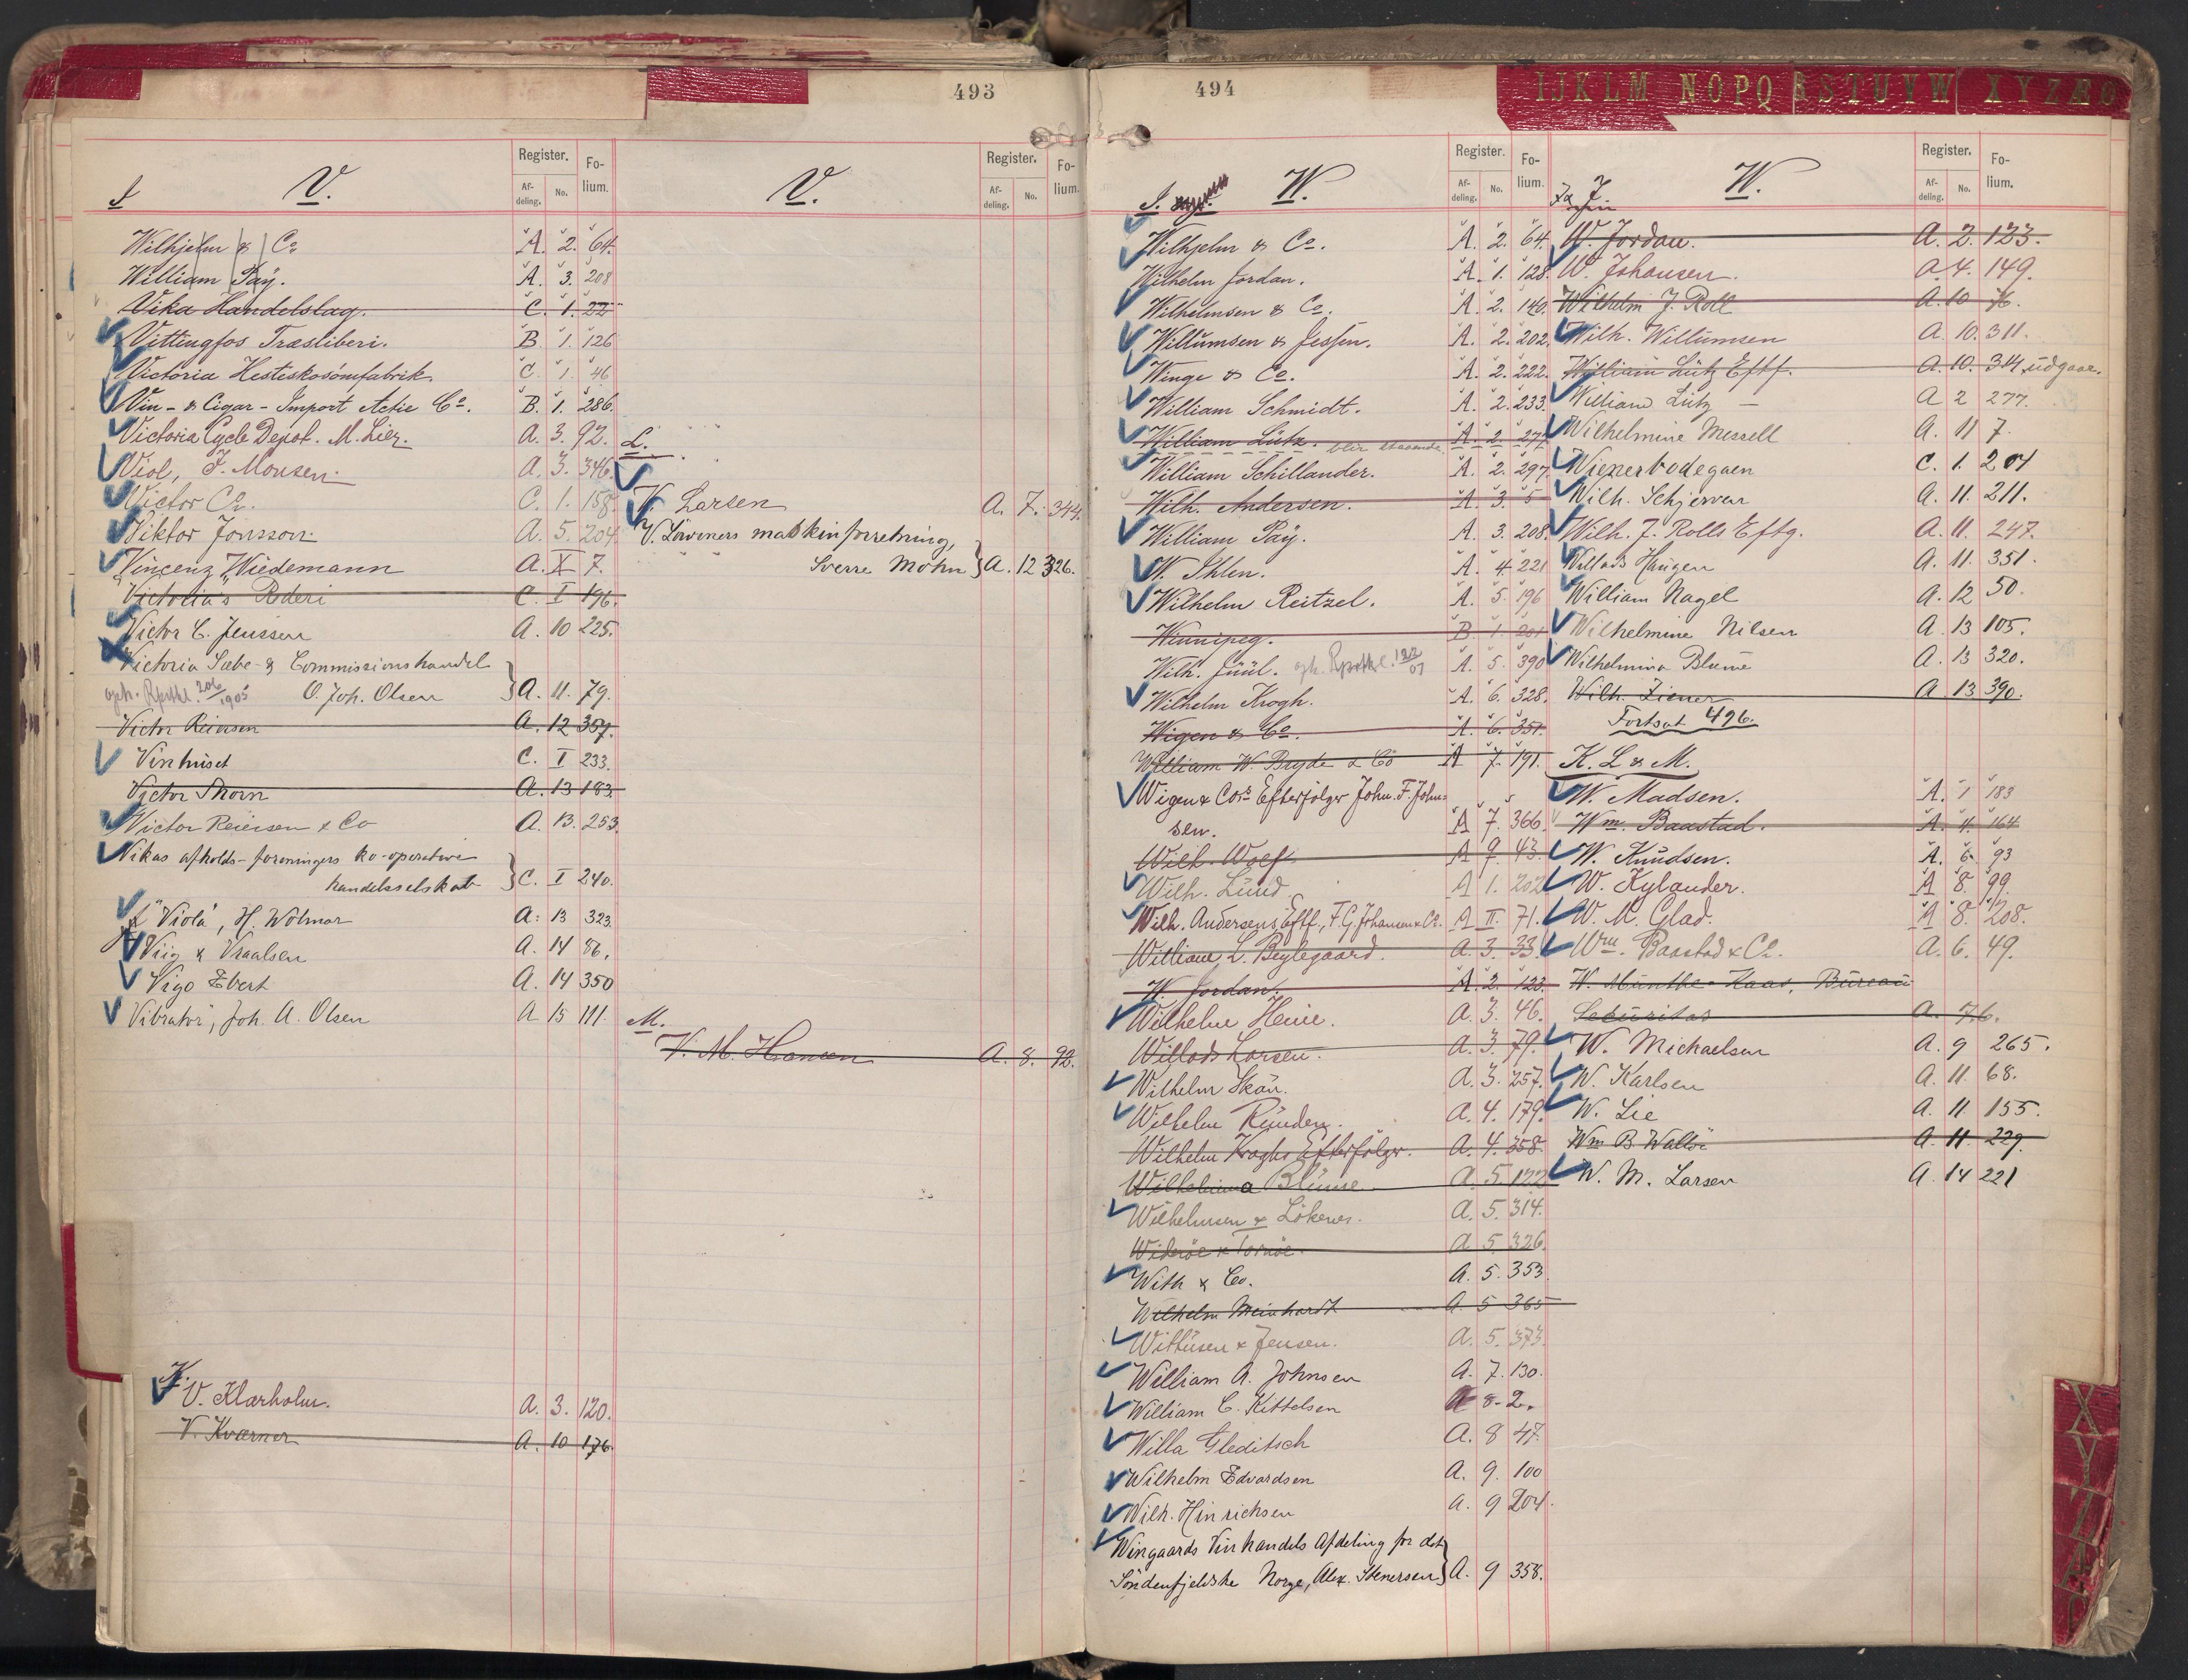 493
V.
Register. Folium.
Afdeling. No.
I
Wilhjelm & Co A. 2. 64.
William Päy. A. 3. 208
Vika Handelslag. C. 1. 22
Vittingfos Træsliberi. B 1. 126
Victoria Hesteskosömfabrik C. 1. 46
Vin- & Cigar-Import Actie Co. B. 1. 286.
Victoria Cycle Depot. M. Lier. A. 3. 92.
Viol, F. Monsen. A. 3. 346.
Victor Co. C. 1. 158.
Viktor Jonsson. A. 5. 204
Vincenz Wiedemann A. X 7.
"Victoria's" Rederi C. I 196.
Victor C. Jenssen A. 10 225.
Victoria Sæbe- & Commissionshandel
O. Joh. Olsen A. 11. 79.
Victor Reiersen A. 12 357.
Vinhuset C. I 233.
Victor Thorn A. 13 183.
Victor Reiersen & Co A. 13. 253.
Vikas afholds-foreningers ko-operative
handelsselskab C. I 240.
"Viola", H. Wolmar A. 13 323.
Viig & Vraalsen A. 14 86.
Vigo Ebert A. 14 350
Vibrator, Joh. A. Olsen A 15 111.
K.
V. Klarholm. A. 3. 120.
V. Kværner A. 10 176.
V.
Register. Folium.
Afdeling. No.
L.
V. Larsen A. 7. 344.
V. Löwener's maskinforretning,
Sverre Mohn A. 12 326.
M.
V. M. Hansen A. 8. 92.
494
I. W.
Register. Folium.
Afdeling. No.
Wilhjelm & Co. A. 2. 64.
Wilhelm Jordan. A. 1. 128.
Wilhelmsen & Co. A. 2. 140.
Willumsen & Jessen. A. 2. 202.
Winge & Co. A. 2. 222.
William Schmidt. A. 2. 233.
William Lütz. blir staaende A. 2. 277
William Schillander. A. 2. 297.
Wilh. Andersen. A. 3. 5
William Päy. A. 3. 208.
W. Ihlen. A. 4. 221
Wilhelm Reitzel. A. 5. 196
Winnipeg. B. 1. 201
Wilh. Juul. A. 5. 390
Wilhelm Krogh. A. 6. 328.
Wigen & Co. A. 6. 351.
William W. Bryde & Co A 7. 191.
Wigen & Co's Efterfölger John. F. John-
sen. A 7. 366.
Wilh. Wolf A 9. 43.
Wilh. Lund A 1. 202
Wilh. Andersens Eftf., F. G. Johansen & Co. A II. 71.
William L. Beylegaard. A. 3. 33.
W. Jordan. A. 2. 123.
Wilhelm Heine. A. 3. 46.
Willads Larsen. A. 3. 79.
Wilhelm Skön. A. 3. 257.
Wilhelm Ründen. A. 4. 179.
Wilhelm Kroghs Efterfölger. A. 4. 358.
Wilhelmina Blume A. 5 122
Wilhelmsen & Lökenes. A. 5. 314.
Wideröe & Tornöe. A 5 326.
With & Co. A. 5. 353.
Wilhelm Meinhardt A 5 365
Wittusen & Jensen. A. 5. 373.
William A. Johnsen A. 7. 130.
William C. Kittelsen A 8. 2.
Willa Gleditsch A. 8 47.
Wilhelm Edvardsen A. 9. 100
Wilh. Hinrichsen A. 9 204.
Wingaards Vinhandels Afdeling for det
Söndenfjeldske Norge, Alex. Stenersen A. 9 358.
IJKLM NOPQ RSTUVW XYZÆØ
W.
Register. Folium.
Afdeling. No.
W. Jordan. A. 2. 123.
W. Johansen. A. 4. 149.
Wilhelm J. Roll A. 10 76.
Wilh. Willumsen A. 10. 311.
William Lütz Eftf. A. 10. 344 udgaar.
William Lütz — A 2 277.
Wilhelmine Messell A. 11 7.
Wienerbodegaen C. 1. 204
Wilh. Schjerven A. 11. 211.
Wilh. J. Rolls Eftg. A. 11. 247.
Willads Haugen A. 11. 351.
William Nagel A. 12 50.
Wilhelmine Nilsen A. 13 105.
Wilhelmina Blume A. 13 320.
Wilh. Ziener A 13 390.
Fortsat 496.
K. L & M.
W. Madsen. A. 1 183
Wm. Baastad. A. 4. 164
W. Knudsen. A. 6. 93
W. Kylander. A 8. 99.
W. M. Glad. A 8. 208.
Wm. Baastad & Co. A. 6. 49.
W. Munthe-Kaas, Bureau
Securitas A. 7. 6.
W. Michaelsen A. 9 265.
W. Karlsen A. 11. 68.
W. Lie A. 11 155.
Wm B Wallöe A. 11. 229.
W. M. Larsen A. 14 221